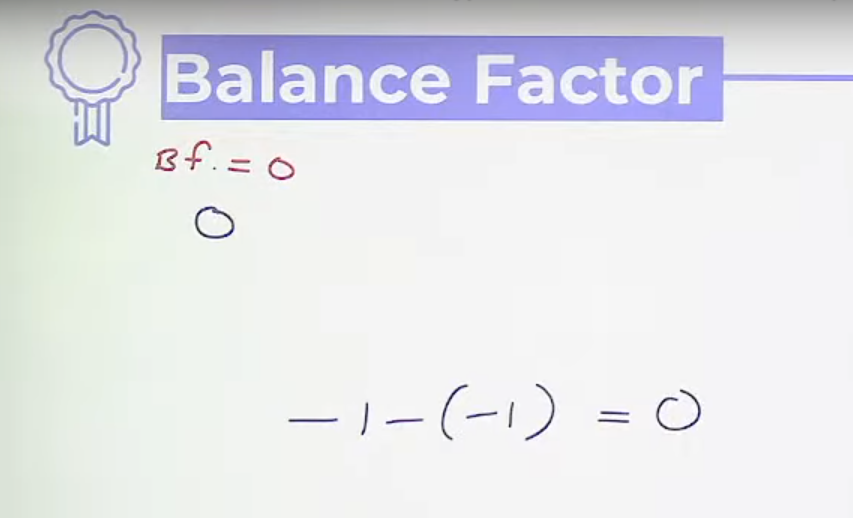 Balance Factor
Bf. = 0
0
-1-(-1) = 0